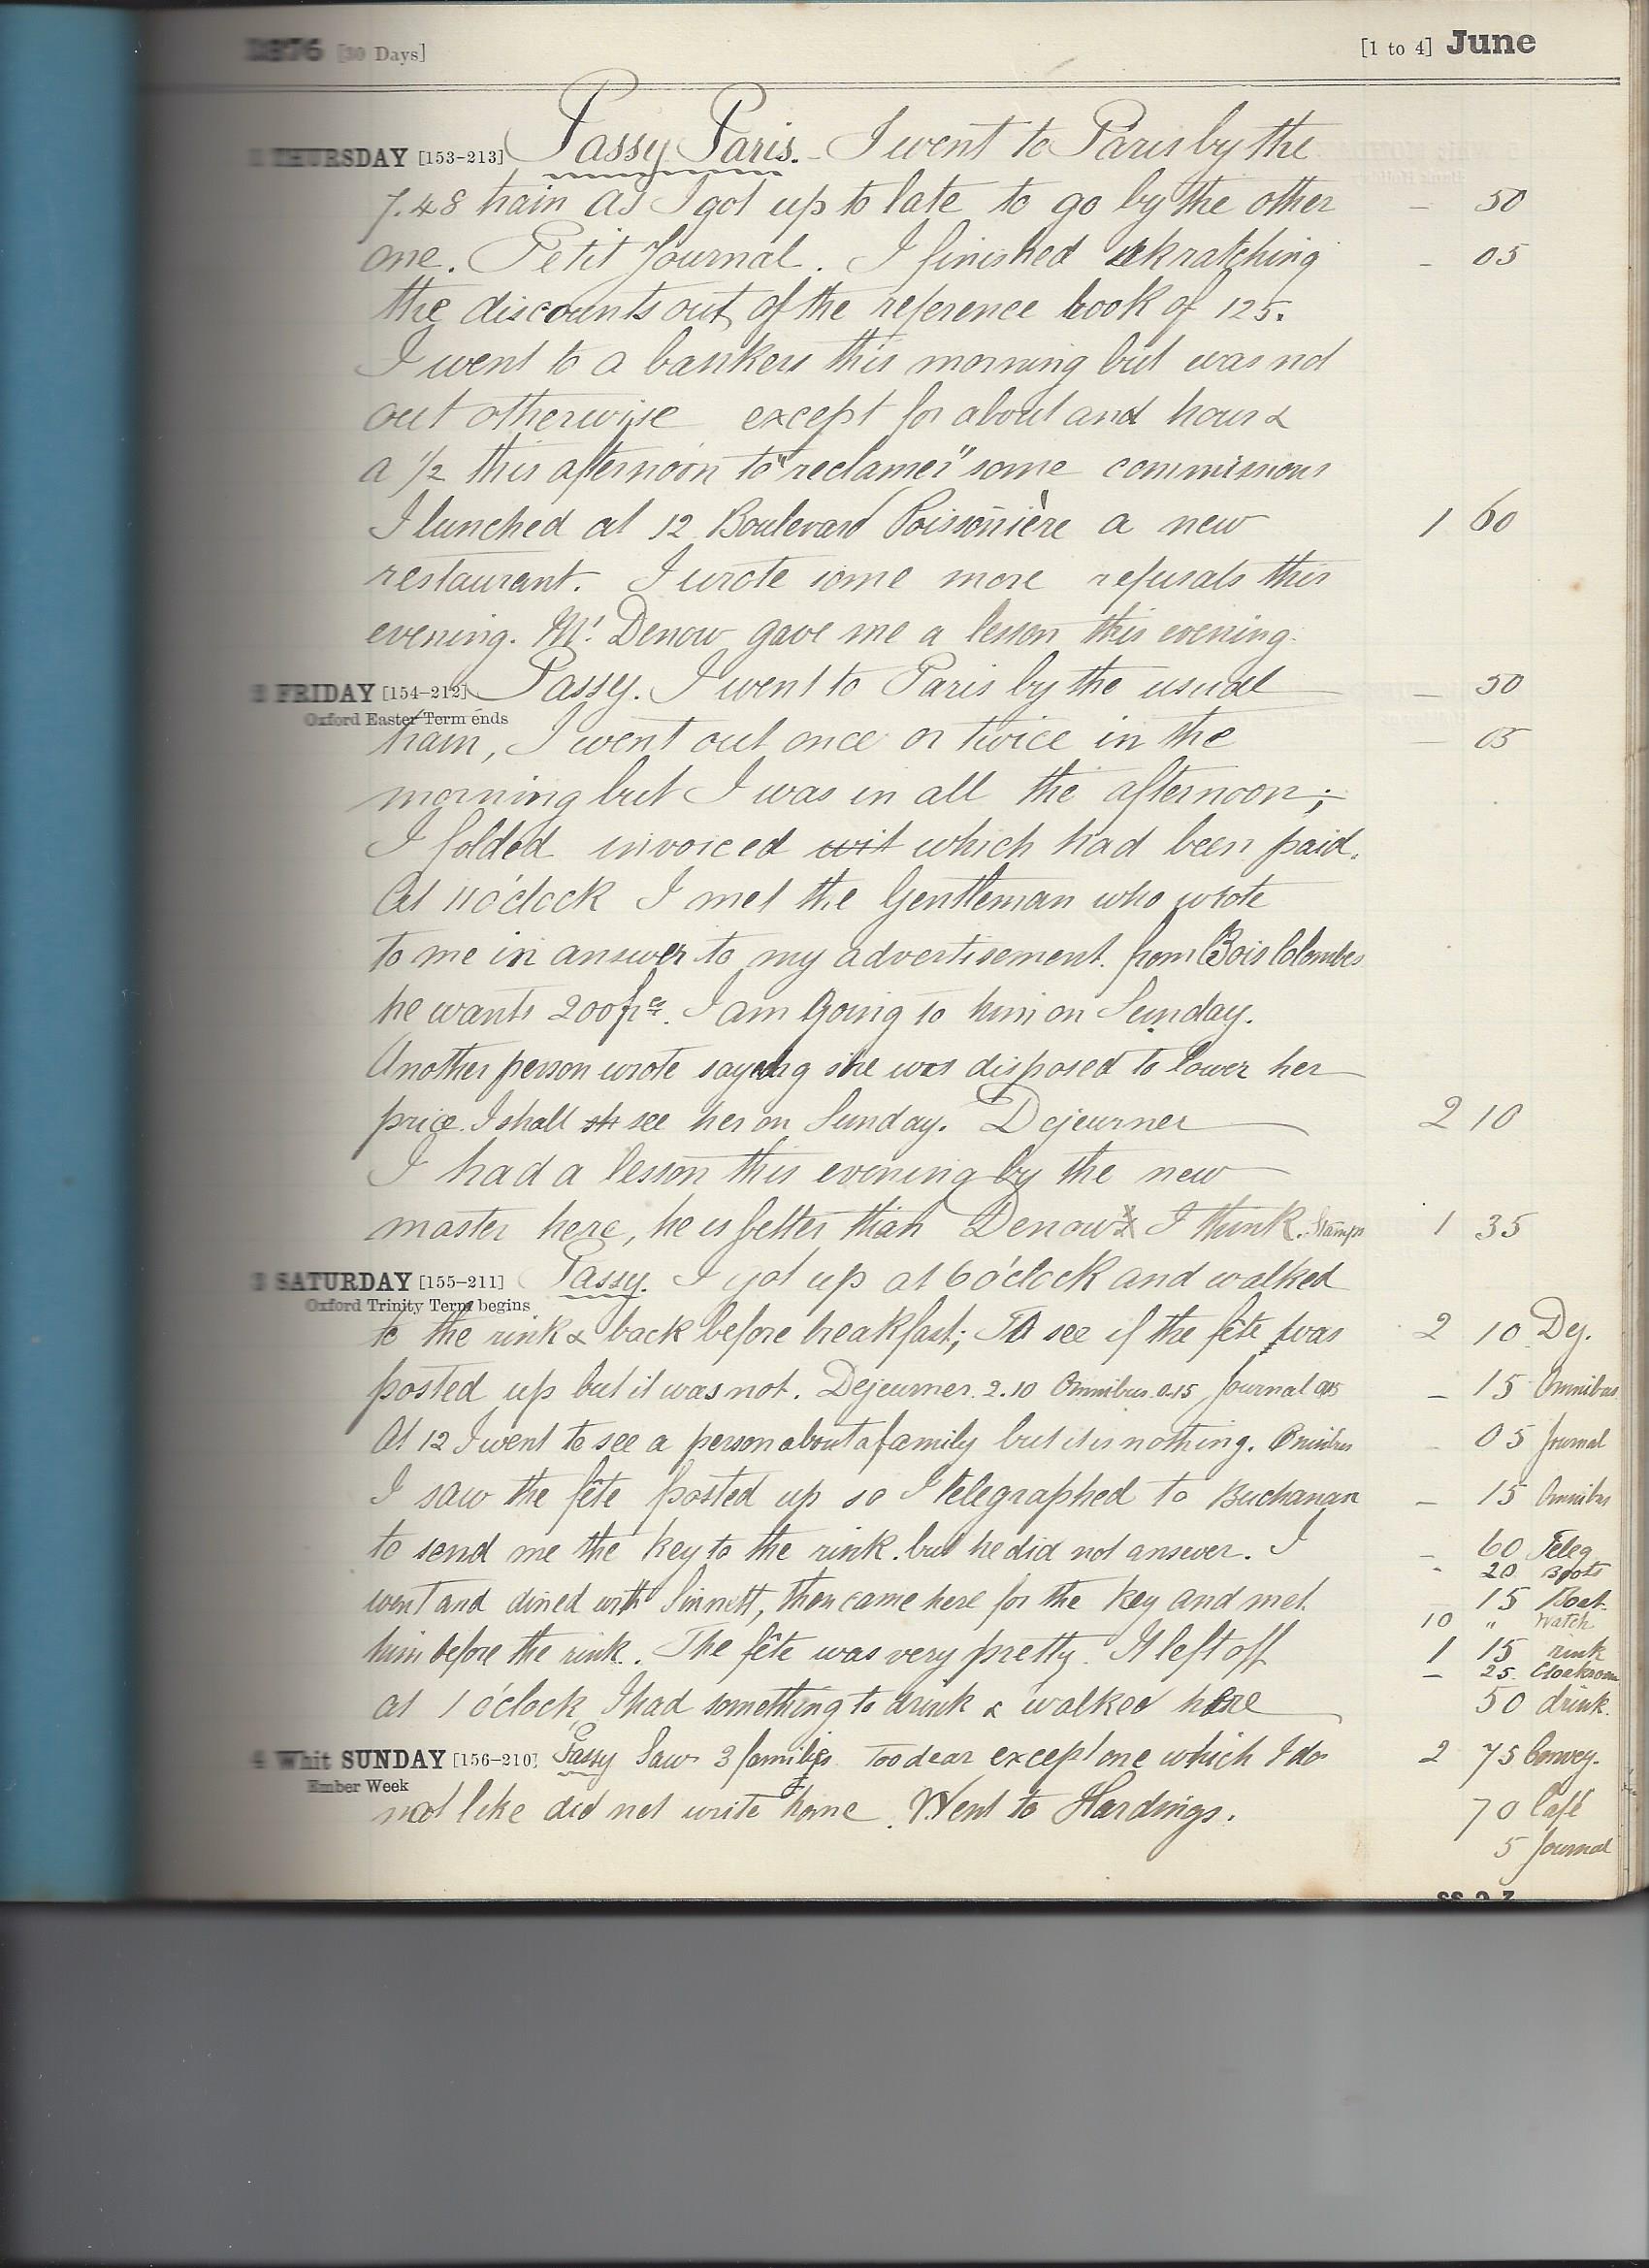 1876 [30 Days] [1 to 4] June
1 THURSDAY [153-213] Passy Paris. - I went to Paris by the
7.48 train as I got up to late to go by the other – 50
one. Petit Journal. I finished skratching – 05
the discounts out of the reference book of 125.
I went to a bankers this morning but was not
out otherwise except for about and hour &
a 1/2 this afternoon to "reclamer" some commissions
I lunched at 12 Boulevard Poissonière a new 1 60
restaurant. I wrote some more refusals this
evening. Mr. Denow gave me a lesson this evening.
2 FRIDAY [154-212] Passy. I went to Paris by the usual – 50
Oxford Easter Term ends
train, I went out once or twice in the – 05
morning but I was in all the afternoon;
I folded invoiced wit which had been paid.
At 11 o'clock I met the Gentleman who wrote
to me in answer to my advertisement. from Bois Colombes
he wants 200frcs. I am going to him on Sunday.
Another person wrote saying she was disposed to lower her
price. I shall sh see her on Sunday. Dejeurner 2 10
I had a lesson this evening by the new
master here, he is better than Denow I think. Stamps 1 35
3 SATURDAY [155-211] Passy. I got up at 6 o'clock and walked
Oxford Trinity Term begins
to the rink & back before breakfast; To see if the fête was 2 10 Dej.
posted up but it was not. Dejeurner. 2.10 Omnibus. 0.15 Journal 0.05 – 15 Omnibus
At 12 I went to see a person about a family but it is nothing. Omnibus – 05 Journal
I saw the fête posted up so I telegraphed to Buchanan – 15 Omnibus
to send me the key to the rink. but he did not answer. I – 60 Teleg
- 20 Boots
went and dined with Sinnett, then came here for the key and met 15 Boat.
10 " Watch
him before the rink. The fête was very pretty. It left off 1 15 rink
– 25 Cloakroom
at 1 o'clock, I had something to drink & walked here 50 drink.
4 Whit SUNDAY [156-210] Passy Saw 3 families Too dear except one which I do 2 75 Convey.
Ember Week
not like did not write home. Went to Hardings. 70 Café
5 Journal